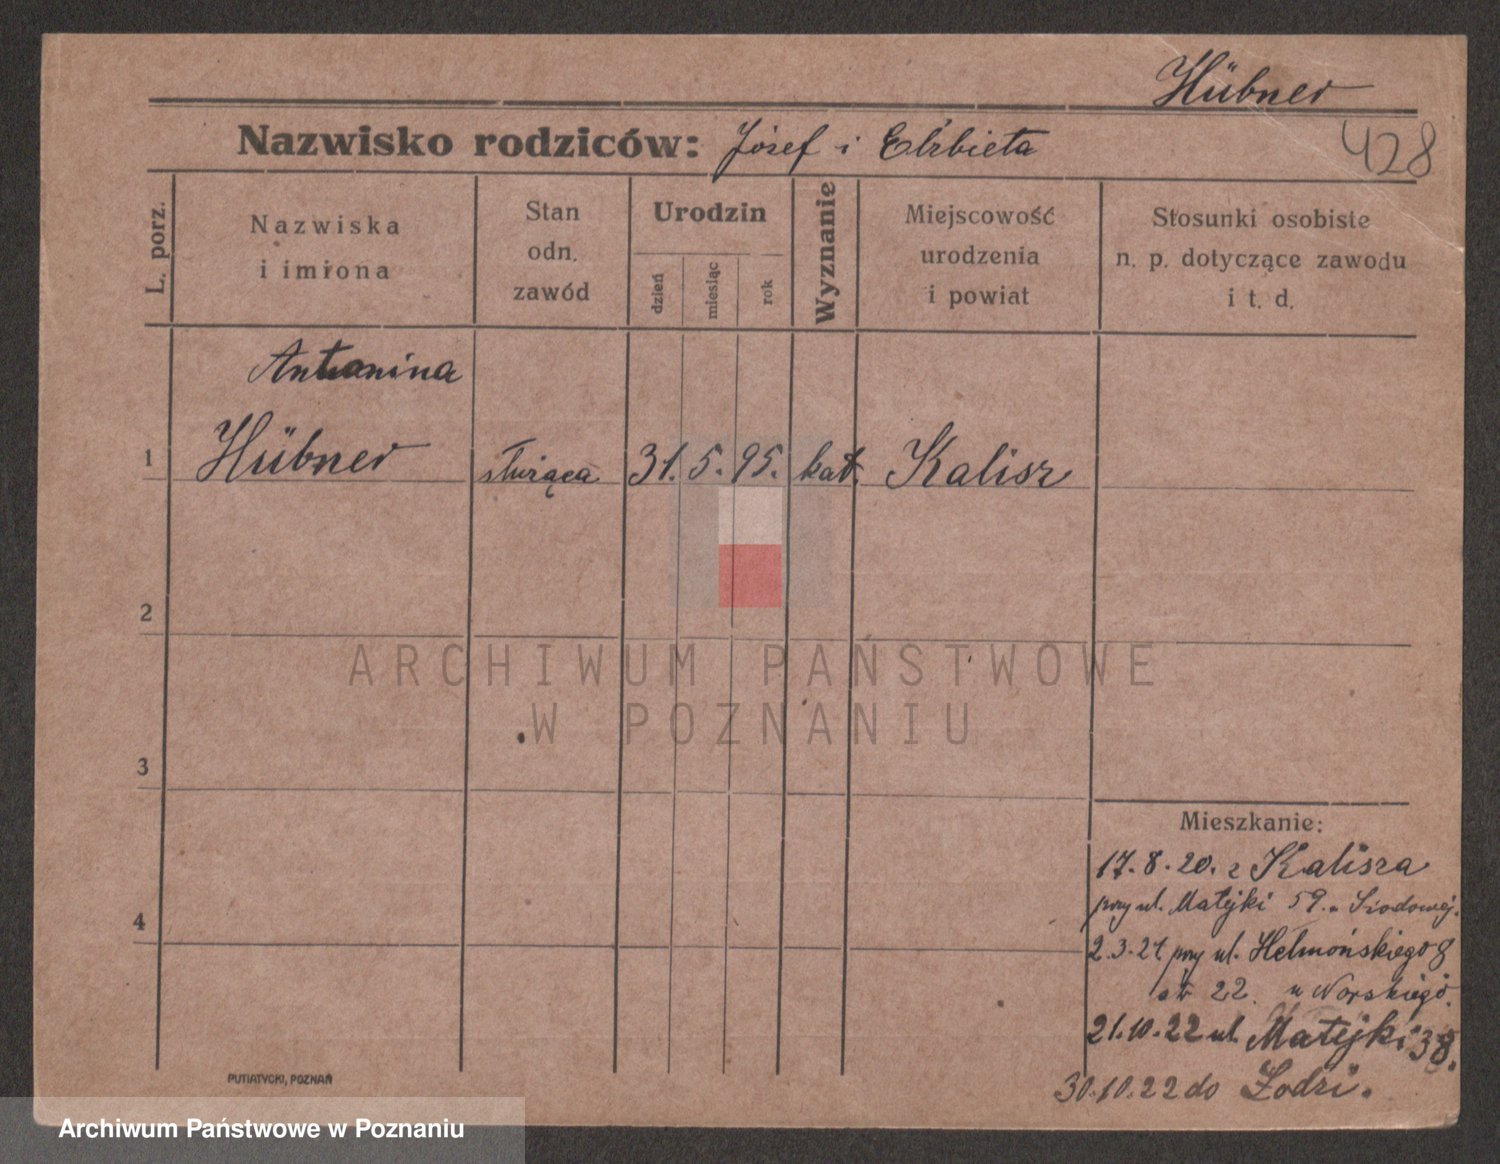 Hübner
428
Nazwisko rodziców: Józef i Elżbieta
L. porz.
Nazwiska
i imiona
Stan
odn.
zawód
Urodzin
dzień
miesiąc
rok
Wyznanie
Miejscowość
urodzenia
i powiat
Stosunki osobiste
n. p. dotyczące zawodu
i t. d.
Antonina
1 Hübner służąca 31. 5. 95. kat. Kalisz
2
3
4
Mieszkanie:
17.8.20. z Kalisza
przy ul. Matejki 59.
2.3.21. przy ul. Hełmońskiego 8
22. u Norskiego.
21.10.22 ul. Matejki 38.
30.10.22 do Łodzi.
PUTIATYCKI, POZNAŃ
ARCHIWUM PAŃSTWOWE
W POZNANIU
Archiwum Państwowe w Poznaniu